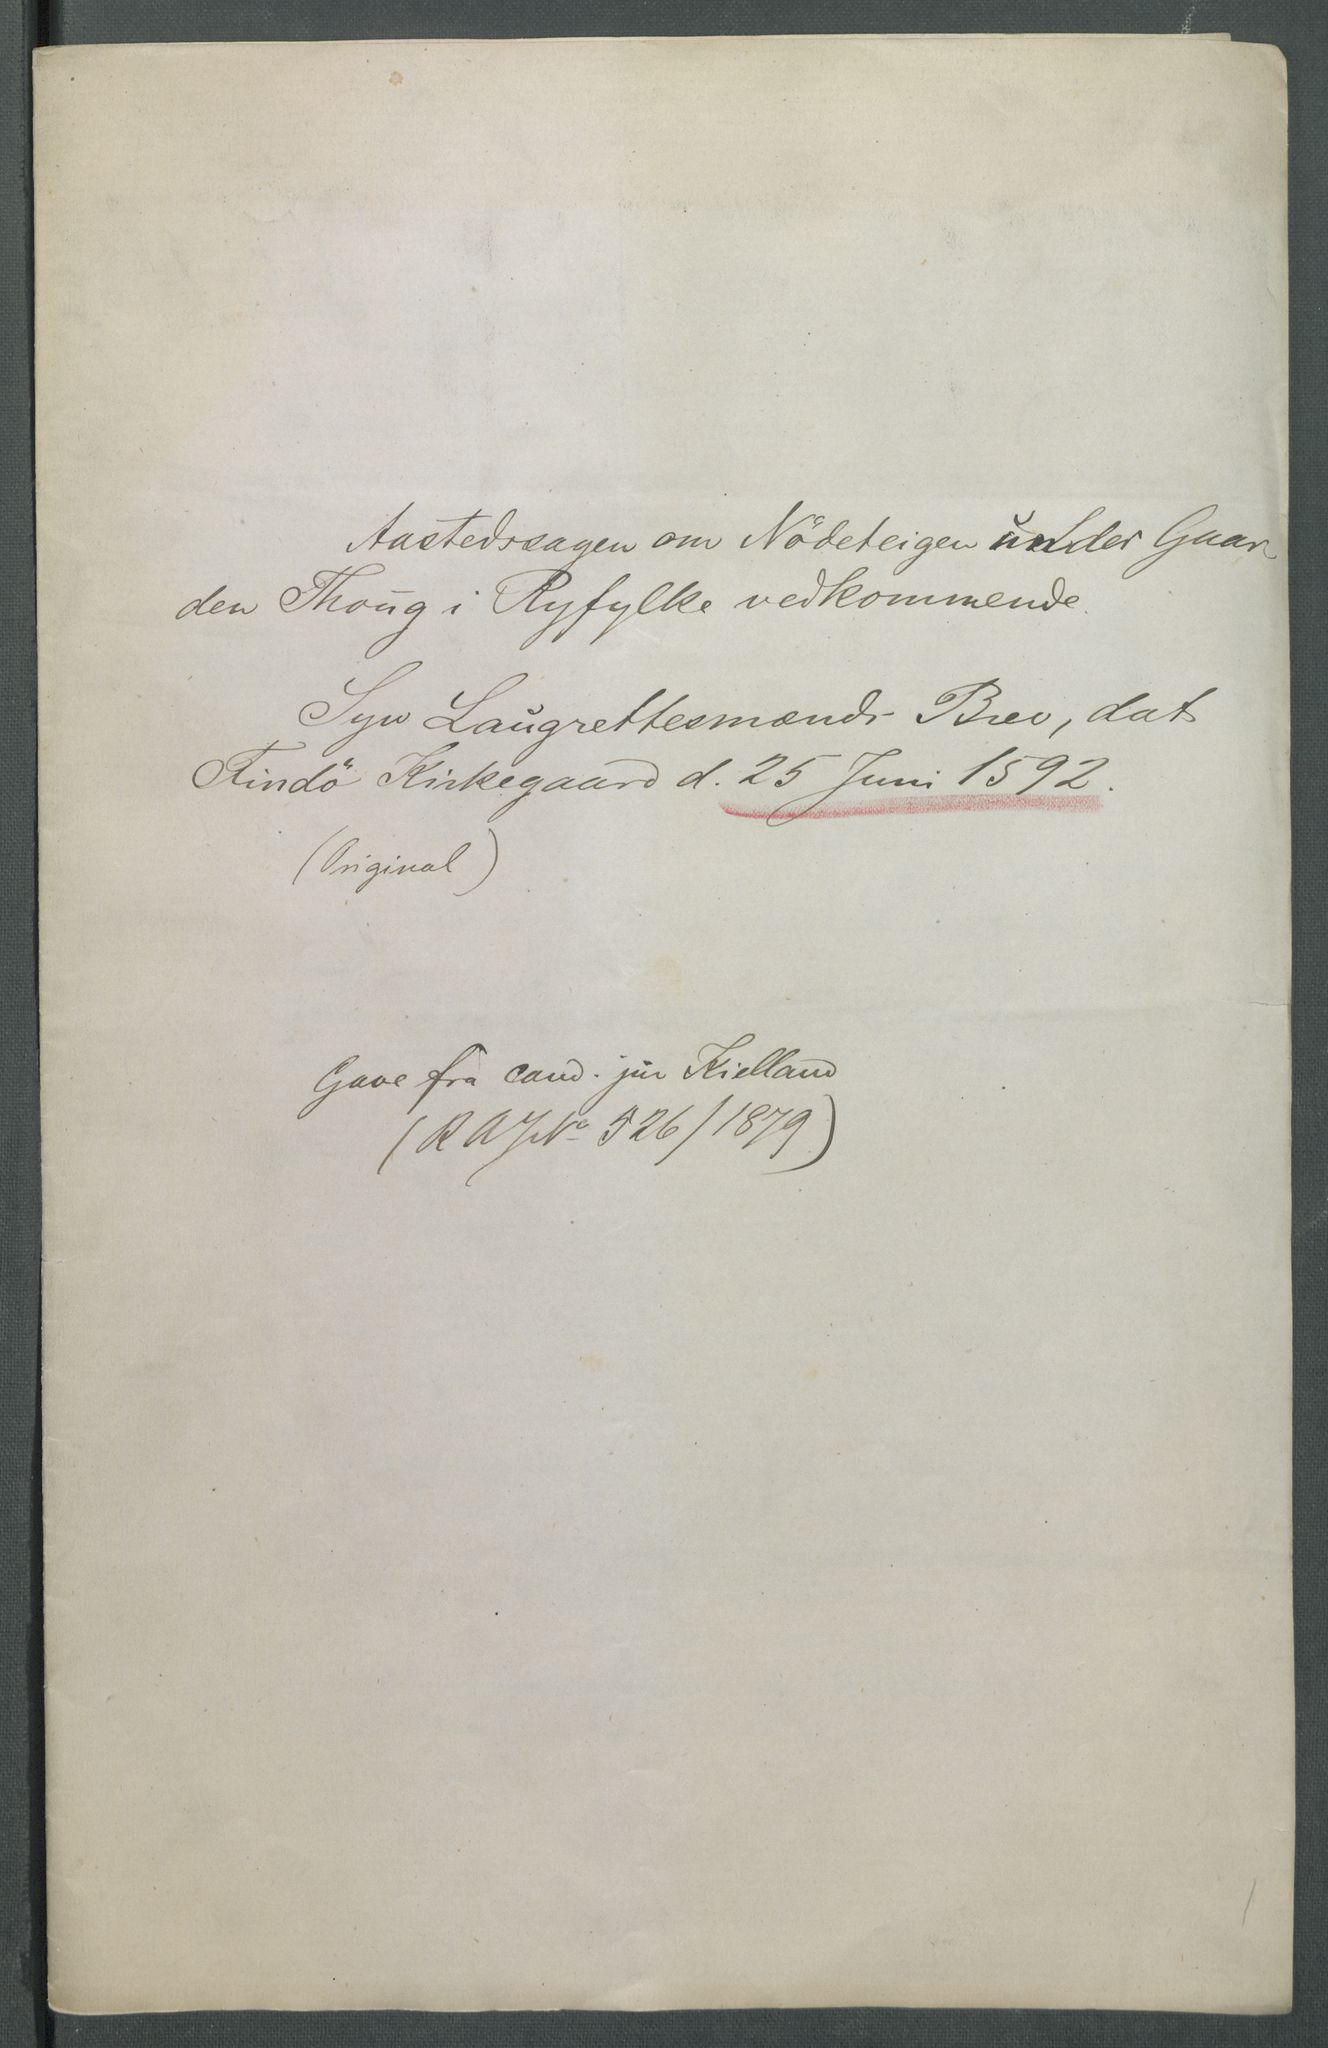 Aastedssagen om Nödeteigen under Gaar-
den Thoug i Ryfylke vedkommende.
Syv Laugrettesmænds Brev, dat
Findö Kirkegaard d. 25 Juni 1592.
(Original)
Gave fra cand. jur Kielland
(R A J No 526/1879)
1